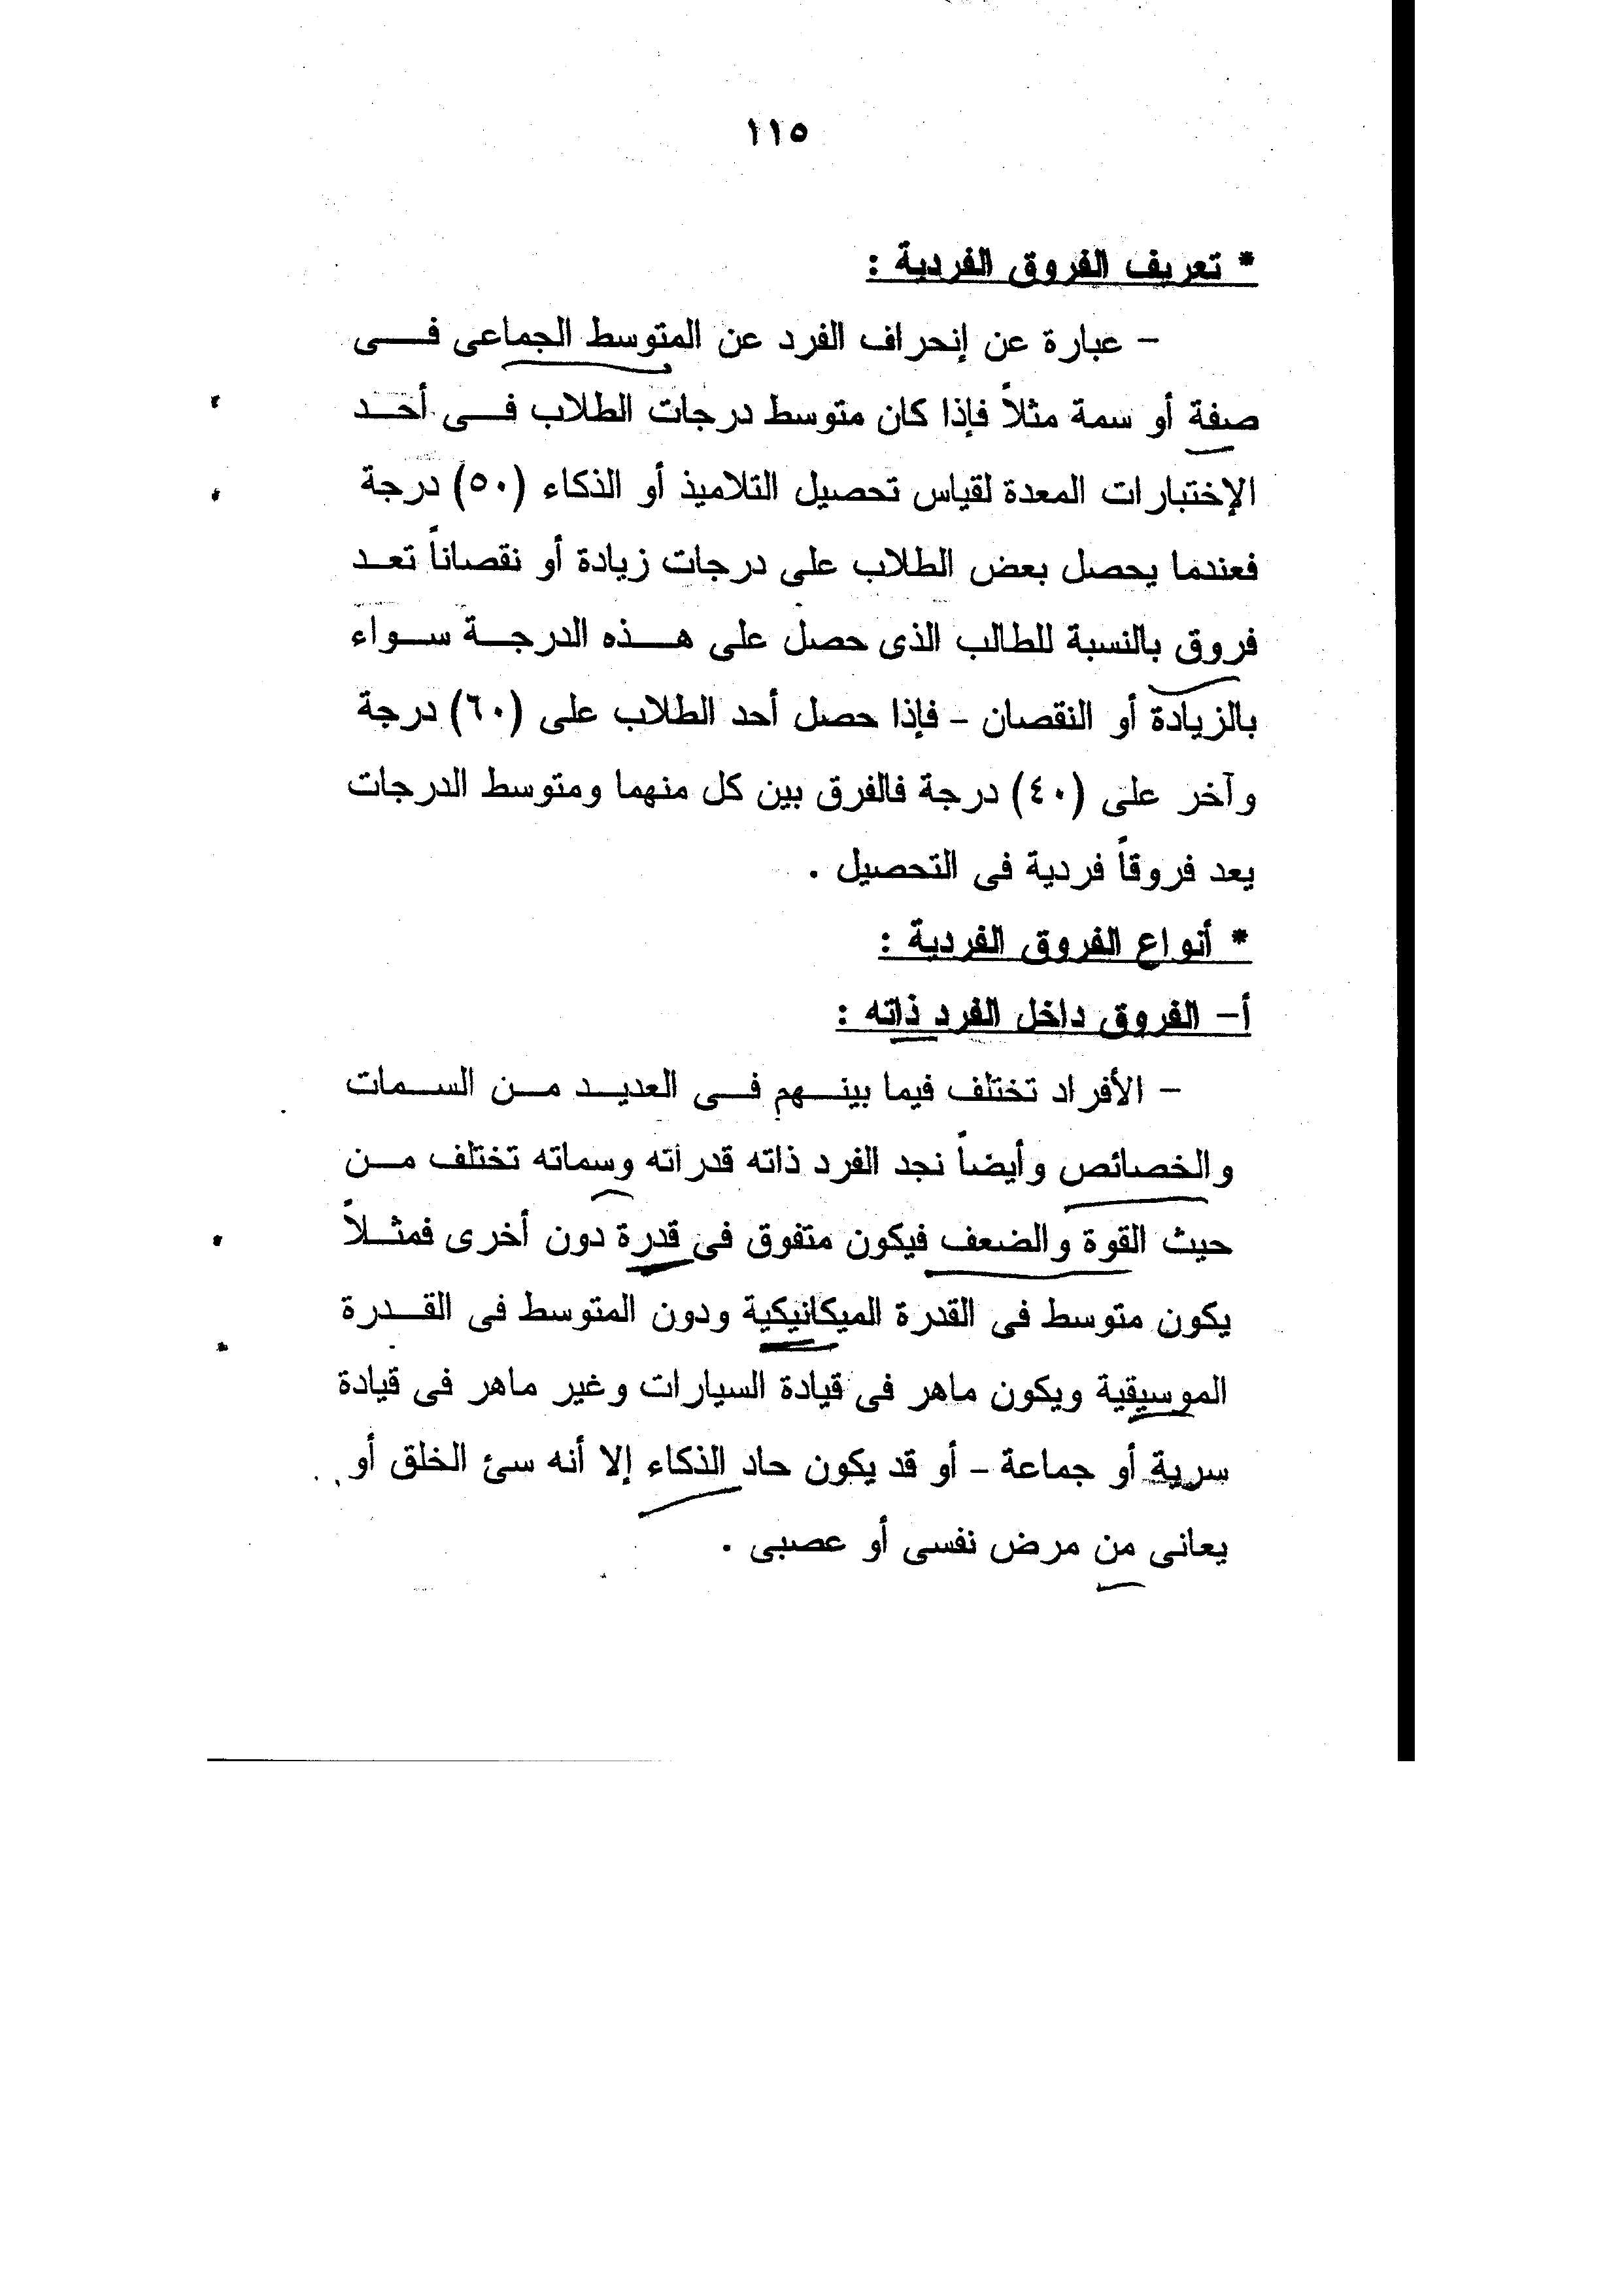 ١١٥
* تعريف الفروق الفردية :
– عبارة عن إنحراف الفرد عن المتوسط الجماعى فى
صفة أو سمة مثلاً فإذا كان متوسط درجات الطلاب فى أحد
الإختبارات المعدة لقياس تحصيل التلاميذ أو الذكاء (٥٠) درجة
فعندما يحصل بعض الطلاب على درجات زيادة أو نقصاناً تعد
فروق بالنسبة للطالب الذى حصل على هذه الدرجة سواء
بالزيادة أو النقصان – فإذا حصل أحد الطلاب على (٦٠) درجة
وآخر على (٤٠) درجة فالفرق بين كل منهما ومتوسط الدرجات
يعد فروقاً فردية فى التحصيل .
* أنواع الفروق الفردية :
أ– الفروق داخل الفرد ذاته :
– الأفراد تختلف فيما بينهم فى العديد من السمات
والخصائص وأيضاً نجد الفرد ذاته قدراته وسماته تختلف من
حيث القوة والضعف فيكون متفوق فى قدرة دون أخرى فمثلاً
يكون متوسط فى القدرة الميكانيكية ودون المتوسط فى القدرة
الموسيقية ويكون ماهر فى قيادة السيارات وغير ماهر فى قيادة
سرية أو جماعة – أو قد يكون حاد الذكاء إلا أنه سئ الخلق أو
يعانى من مرض نفسى أو عصبى .